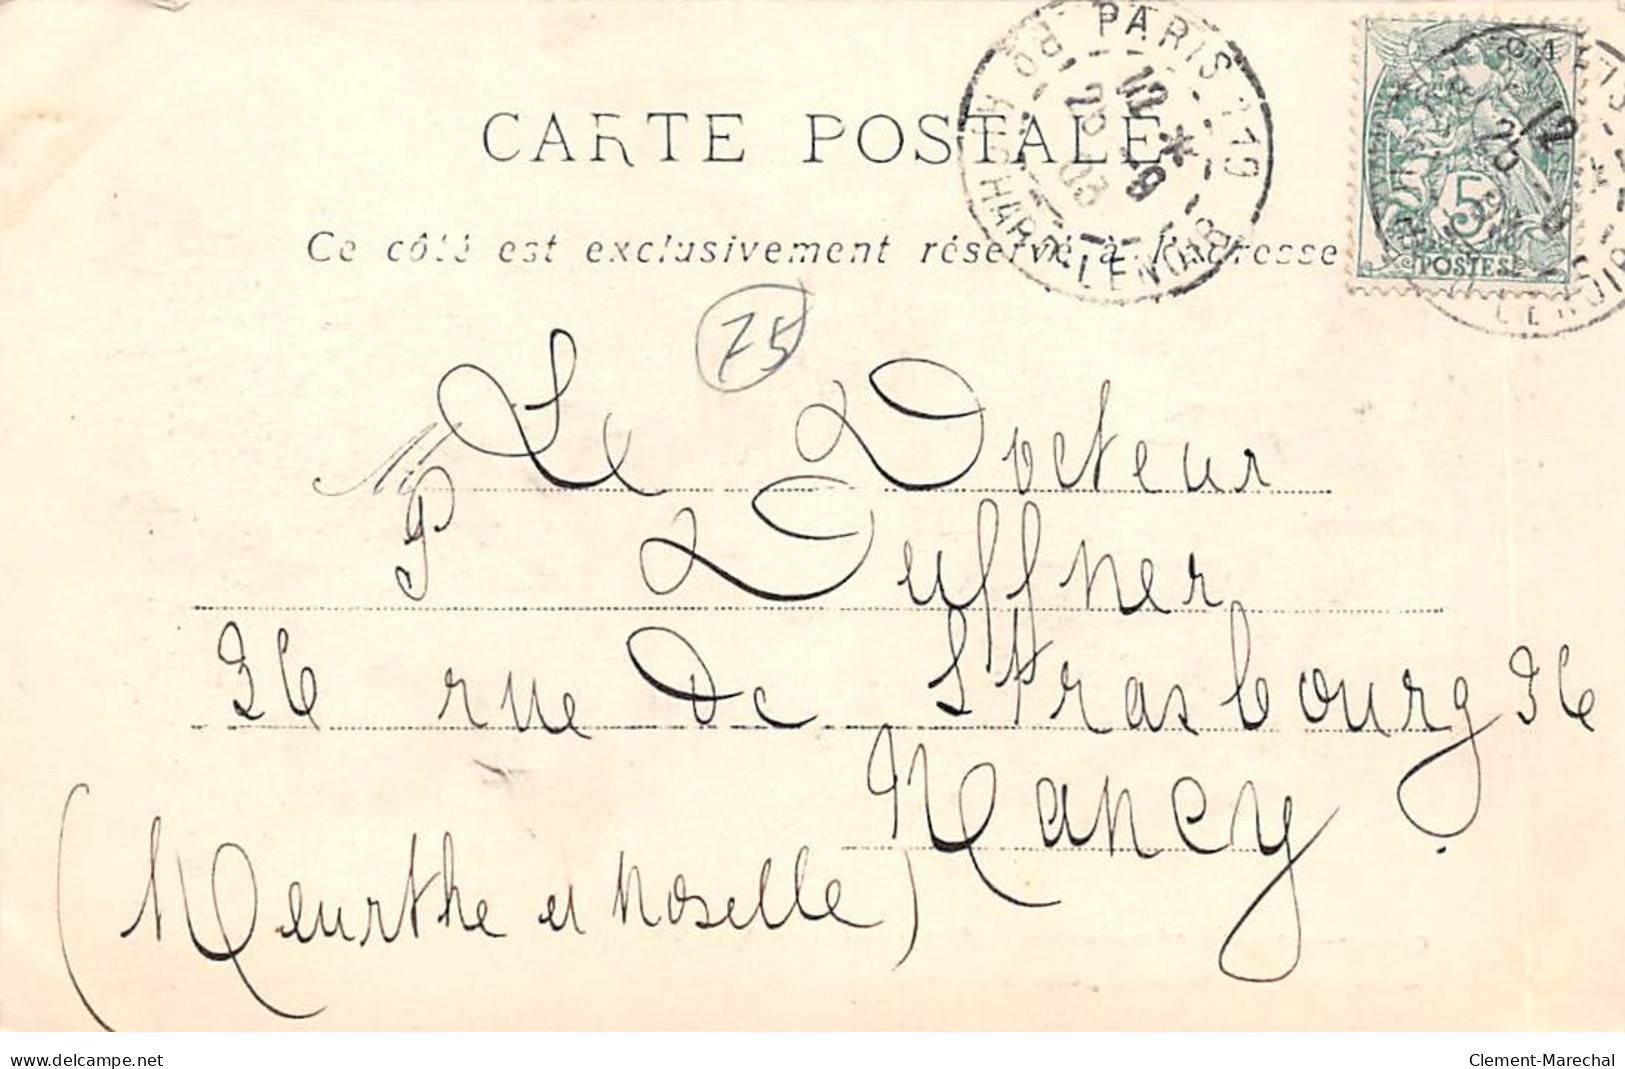 CARTE POSTALE
PARIS 119
12 * 9
03
Ce côté est exclusivement réservé à l'adresse
5
POSTES
75
M
Le Docteur
P Duffner
36 rue de Strasbourg 36
Nancy
(Meurthe et Moselle)
www.delcampe.net
Clement-Marechal